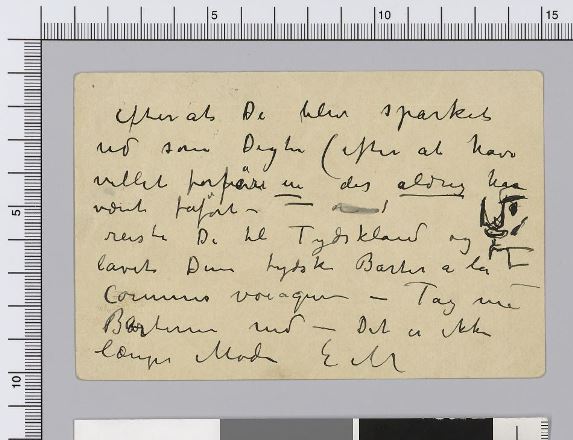 efter at De blev sparket
ud som Digter (efter at have
villet forføre en der aldrig har
været
reiste De til Tydskland og
lavet Dem tydsk Barter a la
Commis voiageur — Tag nu
Barterne med — Det er ikke
længer Mode E M
5
10
15
5
10